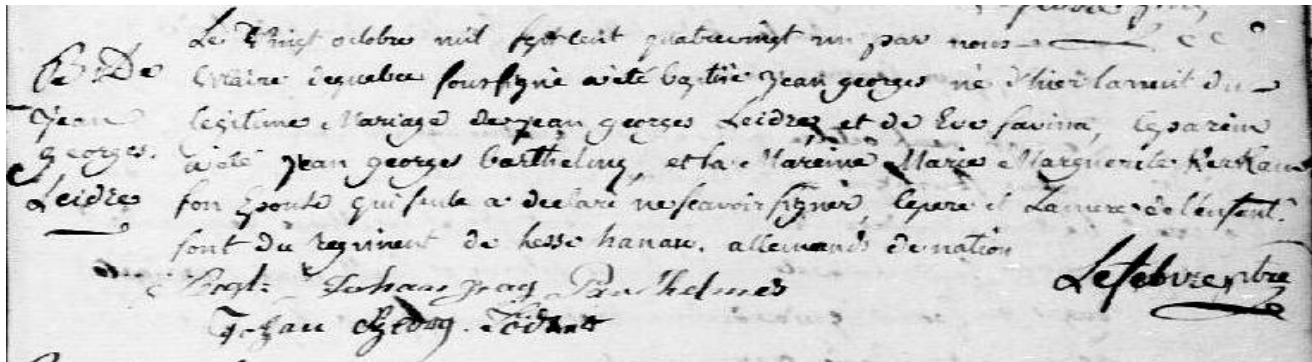 B. De
Jean
georges
Leidres
Le Vingt octobre mil sept cent quatrevingt un par nous
Vicaire dequebec soussigné a été baptisé jean georges né d'hier du
legitime Mariage de jean georges Leidres et de Eve savina, leparein
a été jean georges barthelmy, et la Mareine Marie Marguerite
son Epouse qui seule a declaré ne scavoir signer, lepere et Lamere del'enfent
sont du regiment de hesse hanau, allemands denation
Johan Barthelmes
Lefebvre ptre
Johan Georg